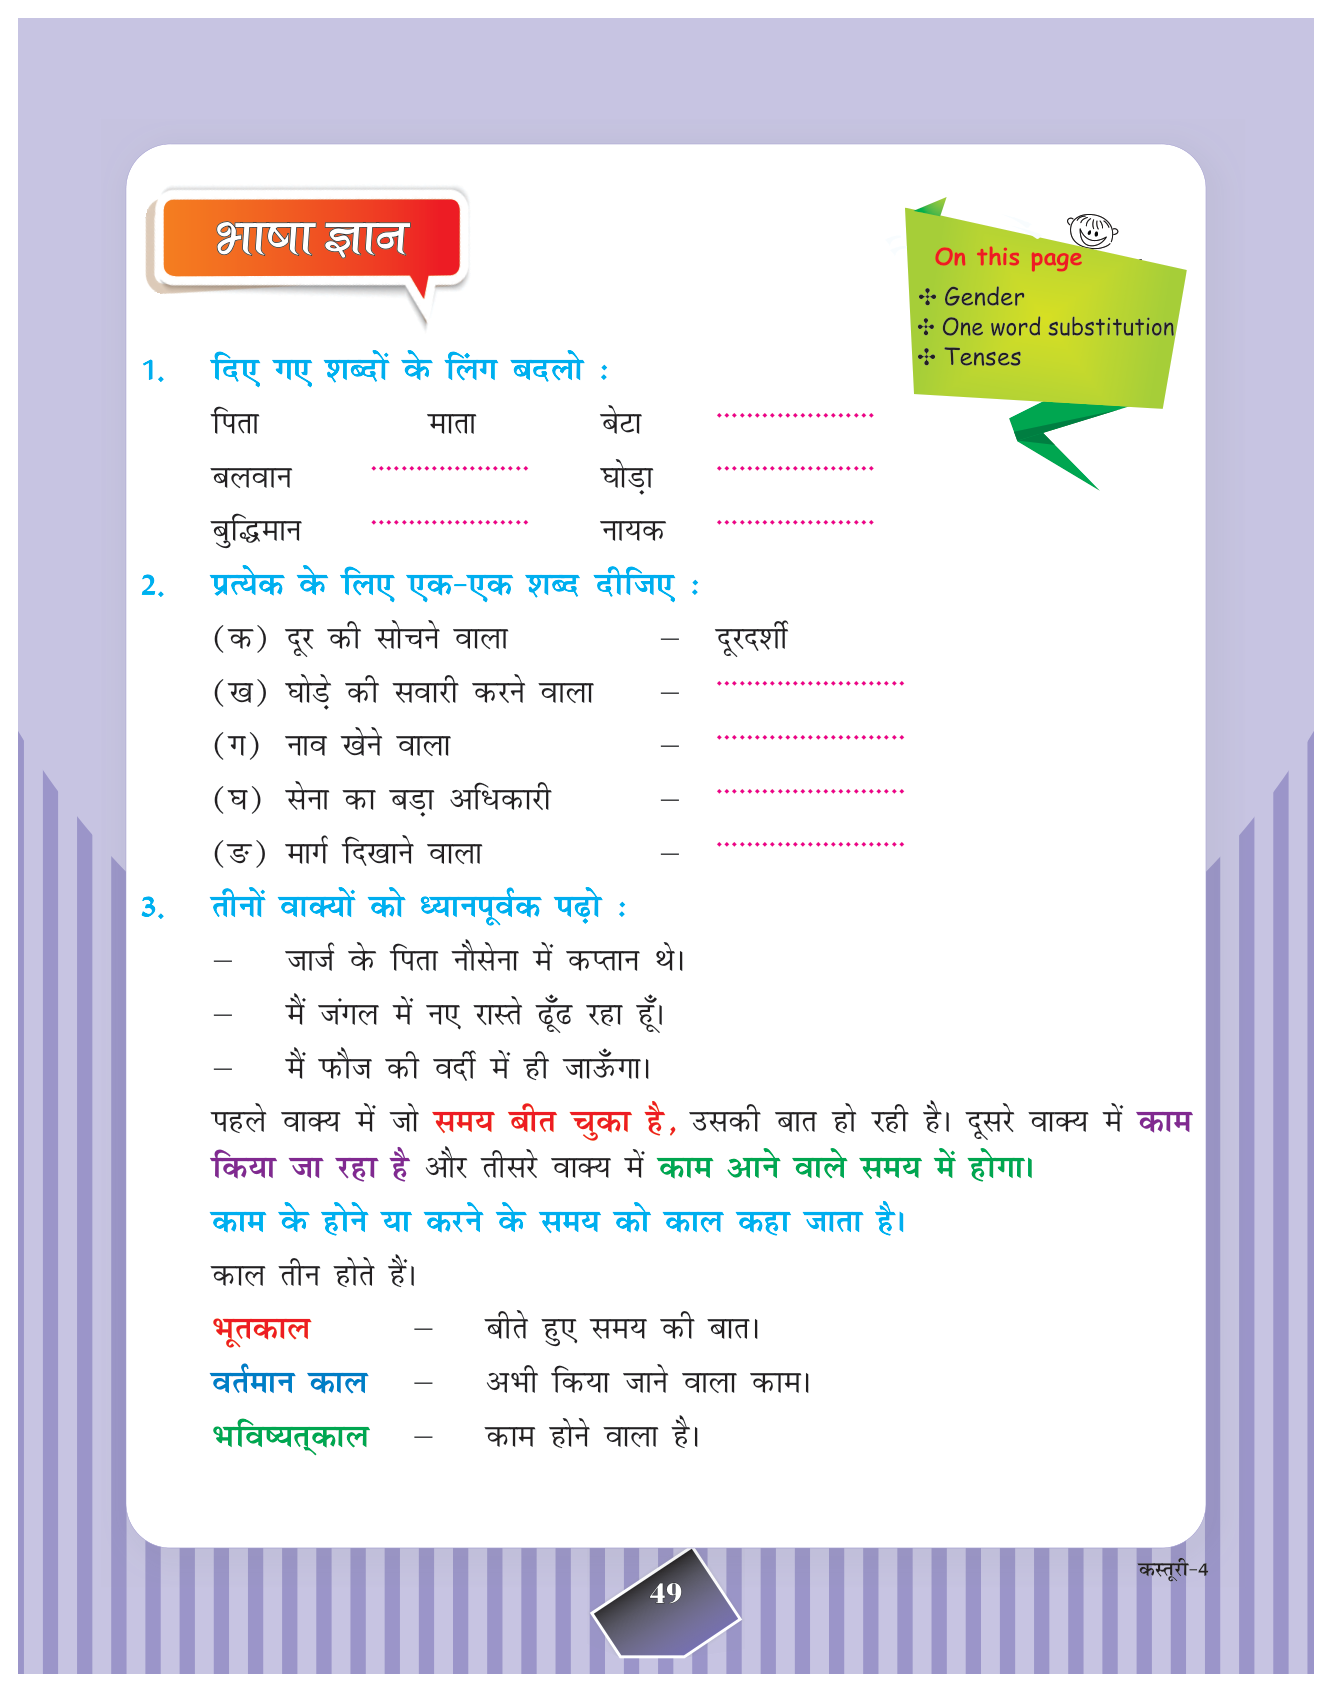 भाषा ज्ञान
On this page
✣ Gender
✣ One word substitution
✣ Tenses
1. दिए गए शब्दों के लिंग बदलो :
पिता माता बेटा ....................
बलवान .................... घोड़ा ....................
बुद्धिमान .................... नायक ....................
2. प्रत्येक के लिए एक-एक शब्द दीजिए :
(क) दूर की सोचने वाला – दूरदर्शी
(ख) घोड़े की सवारी करने वाला – ........................
(ग) नाव खेने वाला – ........................
(घ) सेना का बड़ा अधिकारी – ........................
(ङ) मार्ग दिखाने वाला – ........................
3. तीनों वाक्यों को ध्यानपूर्वक पढ़ो :
– जार्ज के पिता नौसेना में कप्तान थे।
– मैं जंगल में नए रास्ते ढूँढ रहा हूँ।
– मैं फौज की वर्दी में ही जाऊँगा।
पहले वाक्य में जो समय बीत चुका है, उसकी बात हो रही है। दूसरे वाक्य में काम
किया जा रहा है और तीसरे वाक्य में काम आने वाले समय में होगा।
काम के होने या करने के समय को काल कहा जाता है।
काल तीन होते हैं।
भूतकाल – बीते हुए समय की बात।
वर्तमान काल – अभी किया जाने वाला काम।
भविष्यत्काल – काम होने वाला है।
कस्तूरी-4
49